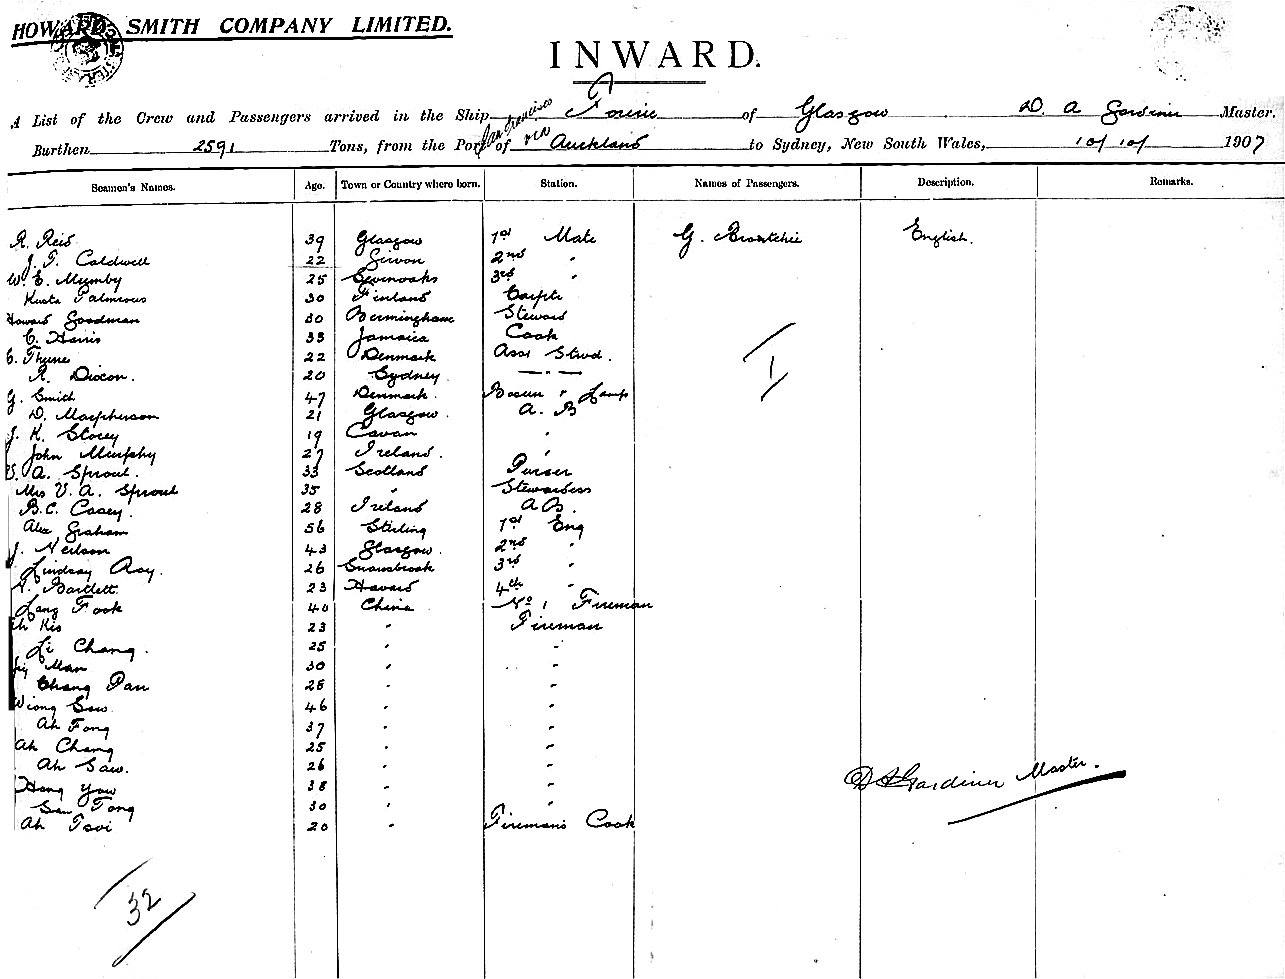 HOWARD SMITH COMPANY LIMITED.
INWARD.
A List of the Crew and Passengers arrived in the Ship Tousie of Glasgow D. A Gardiner Master.
Burthen 2591 Tons, from the Port of San Francisco via Auckland to Sydney, New South Wales, 10/10/ 1907
Seamen's Names. Age. Town or Country where born. Station. Names of Passengers. Description. Remarks.
R. Reid 39 Glasgow 1st Mate G. English.
J. F. Caldwell 22 Girvan 2nd "
W. E. Mumby 25 Sevenoaks 3rd "
Kusta Palmroos 30 Finland Carpt
Howard Goodman 30 Bermingham Steward
C. Harris 33 Jamaica Cook
C. Thune 22 Denmark Asst Stwd.
R. Dixon. 20 Sydney. — " —
G. Smith 47 Denmark. Bosun & Lamps
D. Macpherson 21 Glasgow. A. B
J. K. Storey 19 Cavan "
John Murphy 27 Ireland. "
V. A. Sproul. 33 Scotland Purser
Mrs V. A. Sproul 35 " Stewardess
B. C. Casey. 28 Ireland A B.
Alex Graham 56 Stirling 1st Eng
J. Neilson 43 Glasgow. 2nd "
Lindsay Roy. 26 Snaresbrook 3rd "
Bartlett 23 4th "
Lang Fook 40 China No 1 Fireman
Ah Kis 23 " Fireman
Li Chang. 25 " "
Man 30 " "
Chang Pan 25 " "
Wiong Sew 46 " "
Ah Fong 37 " "
Ah Chang 25 " "
Ah Saw. 26 " "
Hong Yow 38 " "
San Tong 30 " "
Ah Tsoi 20 " Fireman's Cook
1
D A Gardiner Master.
32